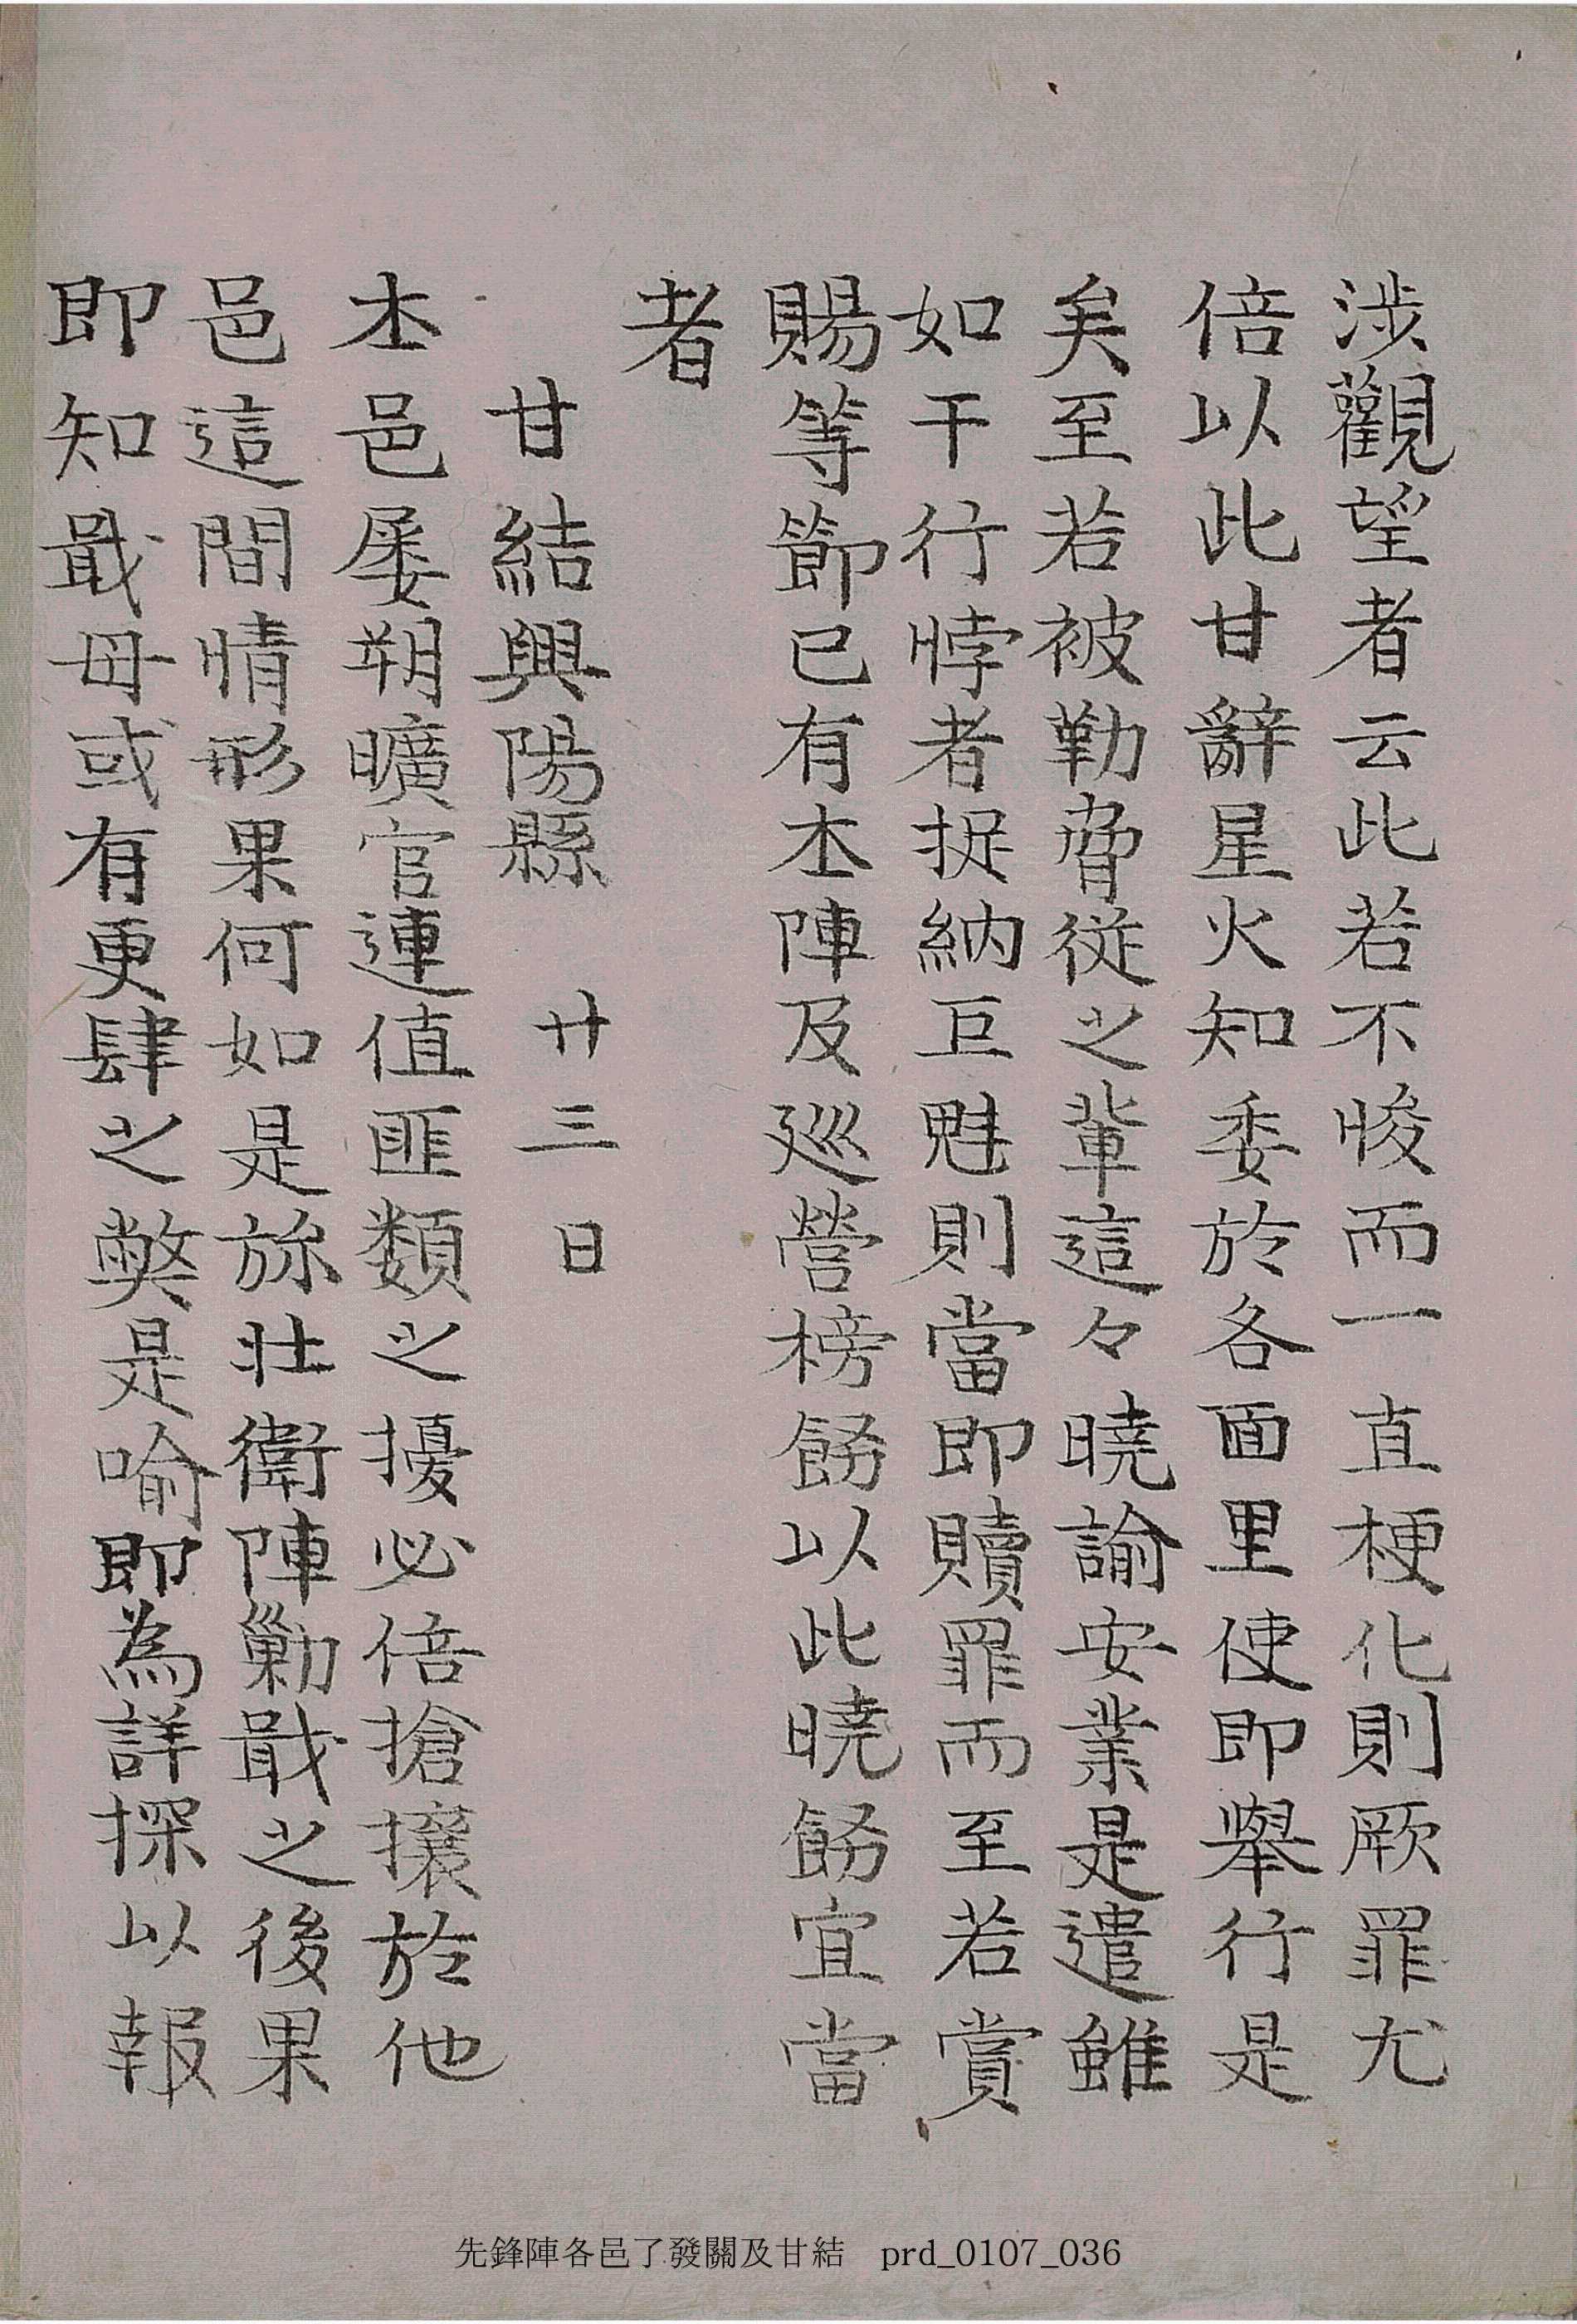 涉觀望者云此若不悛而一直梗化則厥罪尤
倍以此甘辭星火知委於各面里使卽擧行是
矣至若被勒脅從之輩這々曉諭安業是遣雖
如干行悖者捉納巨魁則當卽贖罪而至若賞
賜等節已有本陣及巡營榜飭以此曉飭宜當
者
甘結興陽縣 廿三日
本邑屢朔曠官連值匪類之擾必倍搶攘於他
邑這間情形果何如是旀壯衛陣勦戢之後果
卽知戢毋或有更肆之弊是喩卽為詳探以報
先鋒陣各邑了發關及甘結 prd_0107_036